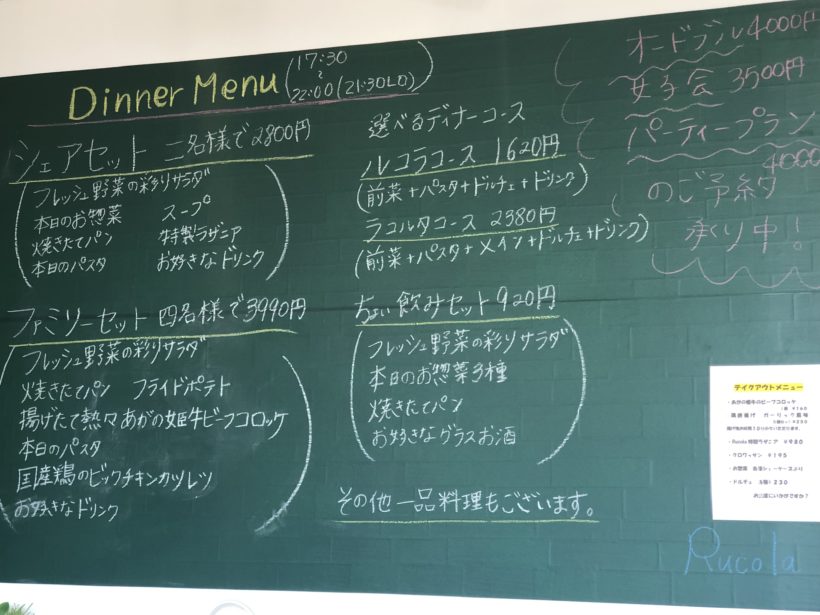 Dinner Menu (17:30
~
22:00 (21:30LO))
シェアセット 二名様で2800円
フレッシュ野菜の彩りサラダ
本日のお惣菜 スープ
焼きたてパン 特製ラザニア
本日のパスタ お好きなドリンク
ファミリーセット 四名様で3990円
フレッシュ野菜の彩りサラダ
焼きたてパン フライドポテト
揚げたて熱々あがの姫牛ビーフコロッケ
本日のパスタ
国産鶏のビックチキンカツレツ
お好きなドリンク
選べるディナーコース
ルコラコース 1620円
(前菜+パスタ+ドルチェ+ドリンク)
ラコルタコース 2380円
(前菜+パスタ+メイン+ドルチェ+ドリンク)
ちょい飲みセット 920円
フレッシュ野菜の彩りサラダ
本日のお惣菜3種
焼きたてパン
お好きなグラスお酒
その他一品料理もございます。
オードブル4000円
女子会 3500円
パーティープラン
4000
のご予約
承り中!
テイクアウトメニュー
・あがの姫牛のビーフコロッケ
1個 ¥160
鶏唐揚げ ガーリック風味
¥250
・Rucola特製ラザニア ¥980
・クロワッサン ¥195
・お惣菜 各種ショーケースより
・ドルチェ 各種¥230
お土産にいかがですか?
Rucola